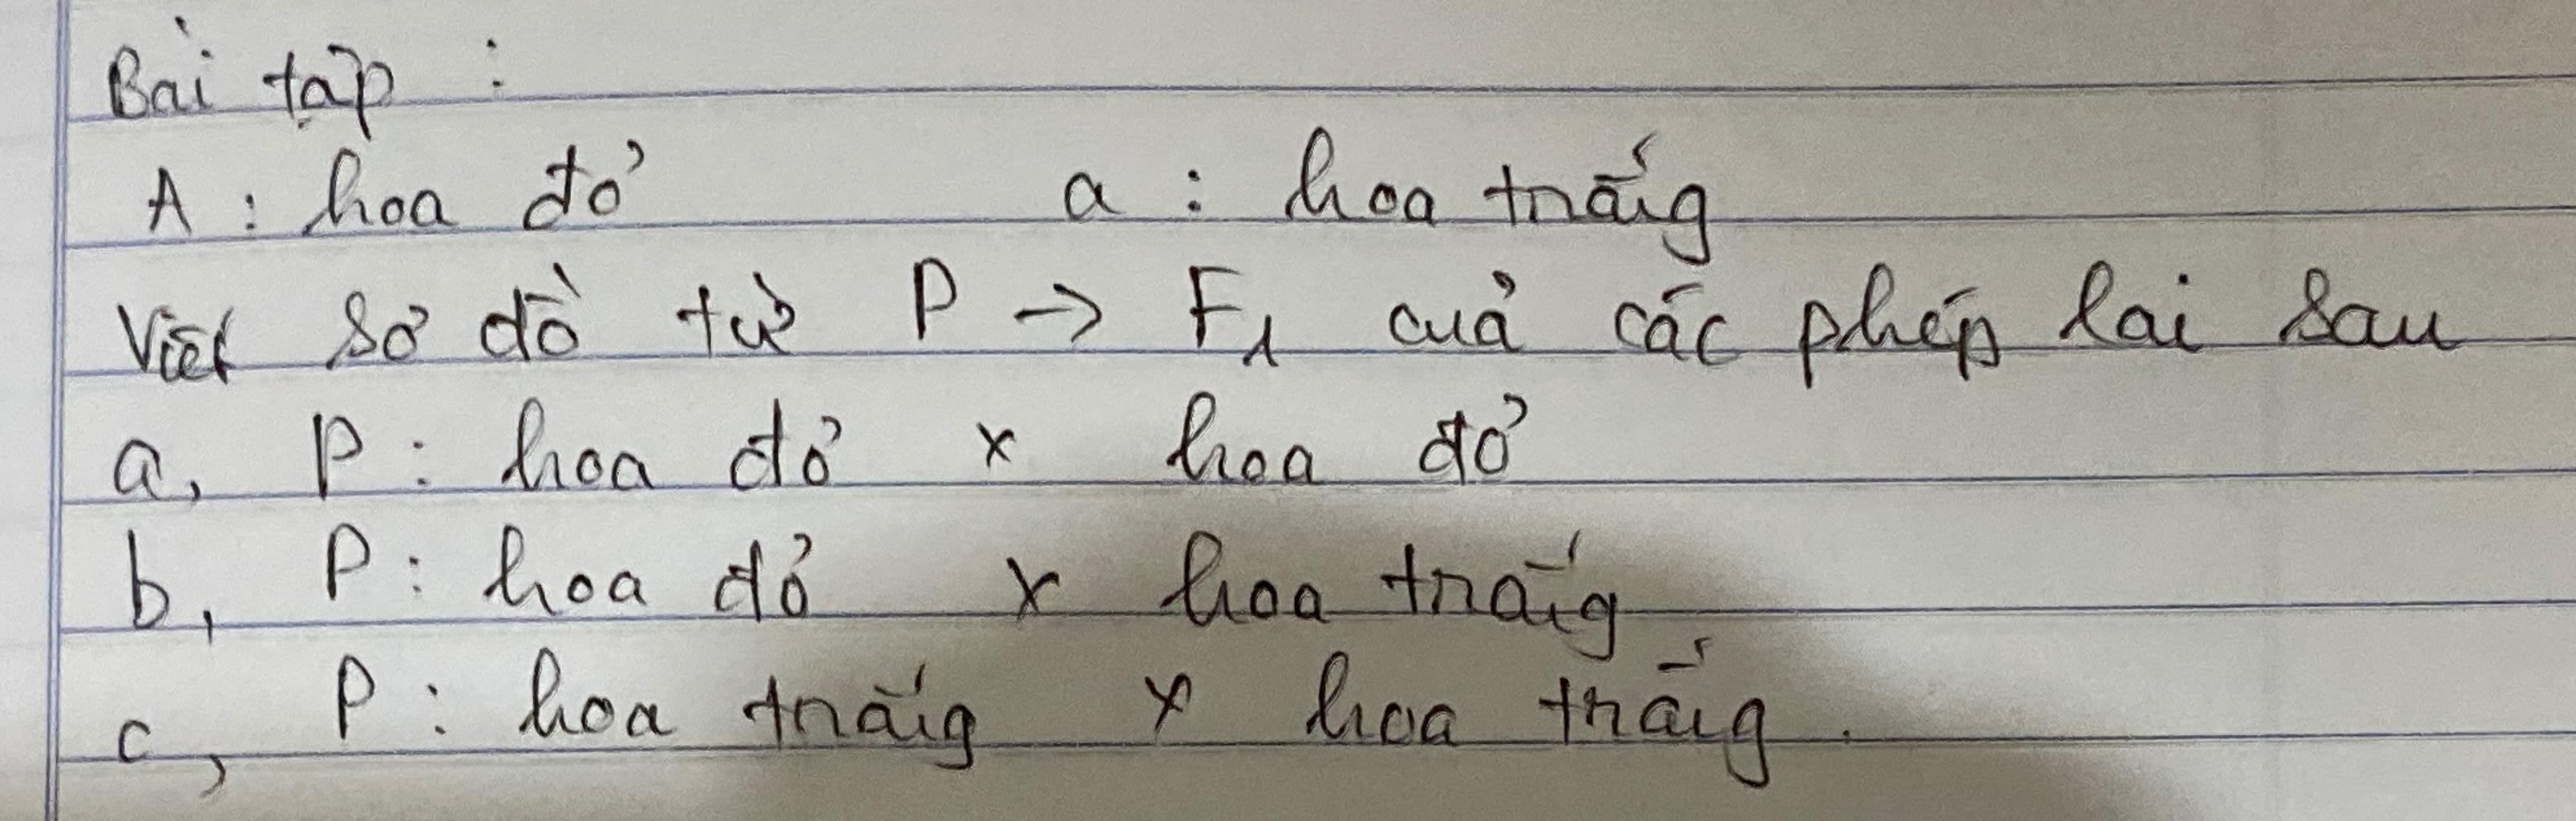 Bài tập :
A : hoa đỏ a : hoa trắng
Viết sơ đồ từ P → F1 của các phép lai sau
a, P : hoa đỏ x hoa đỏ
b, P : hoa đỏ x hoa trắng
c, P : hoa trắng x hoa trắng.